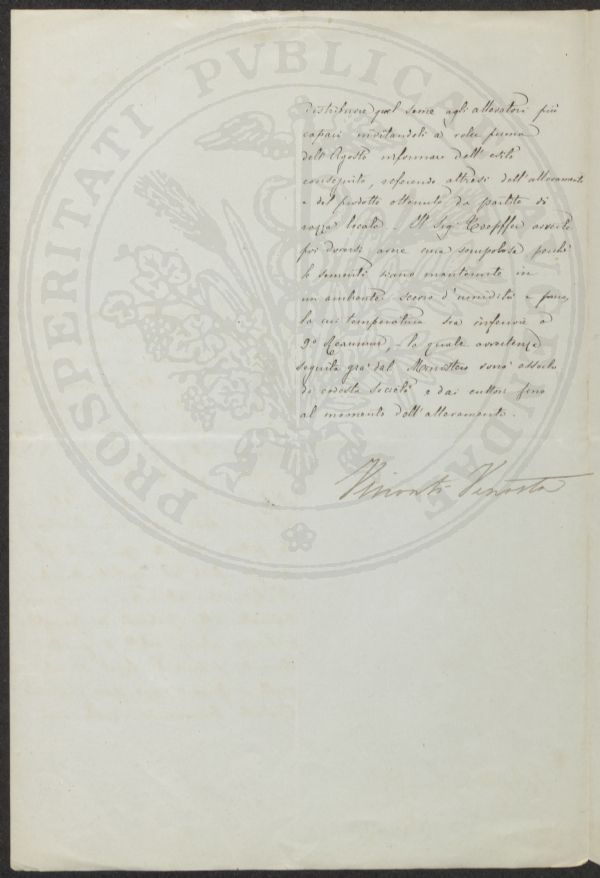 PROSPERITATI PVBLICAE AVGENDAE
distribuire quel seme agli allevatori più
capaci invitandoli a voler prima
dell'Agosto informare dell'esito
conseguito, riferendo altresì dell'allevamento
e del prodotto ottenuto da partite di
razza locale. - Il Sig.r avverte
poi doversi avere cura scrupolosa perchè
le sementi siano mantenute in
un ambiente scevro d'umidità e
la cui temperatura sia inferiore a
9° Reaumur, - la quale avvertenza
seguita già dal Ministero
di codesta Società e dai cultori fino
al momento dell'allevamento.
Visconti Venosta